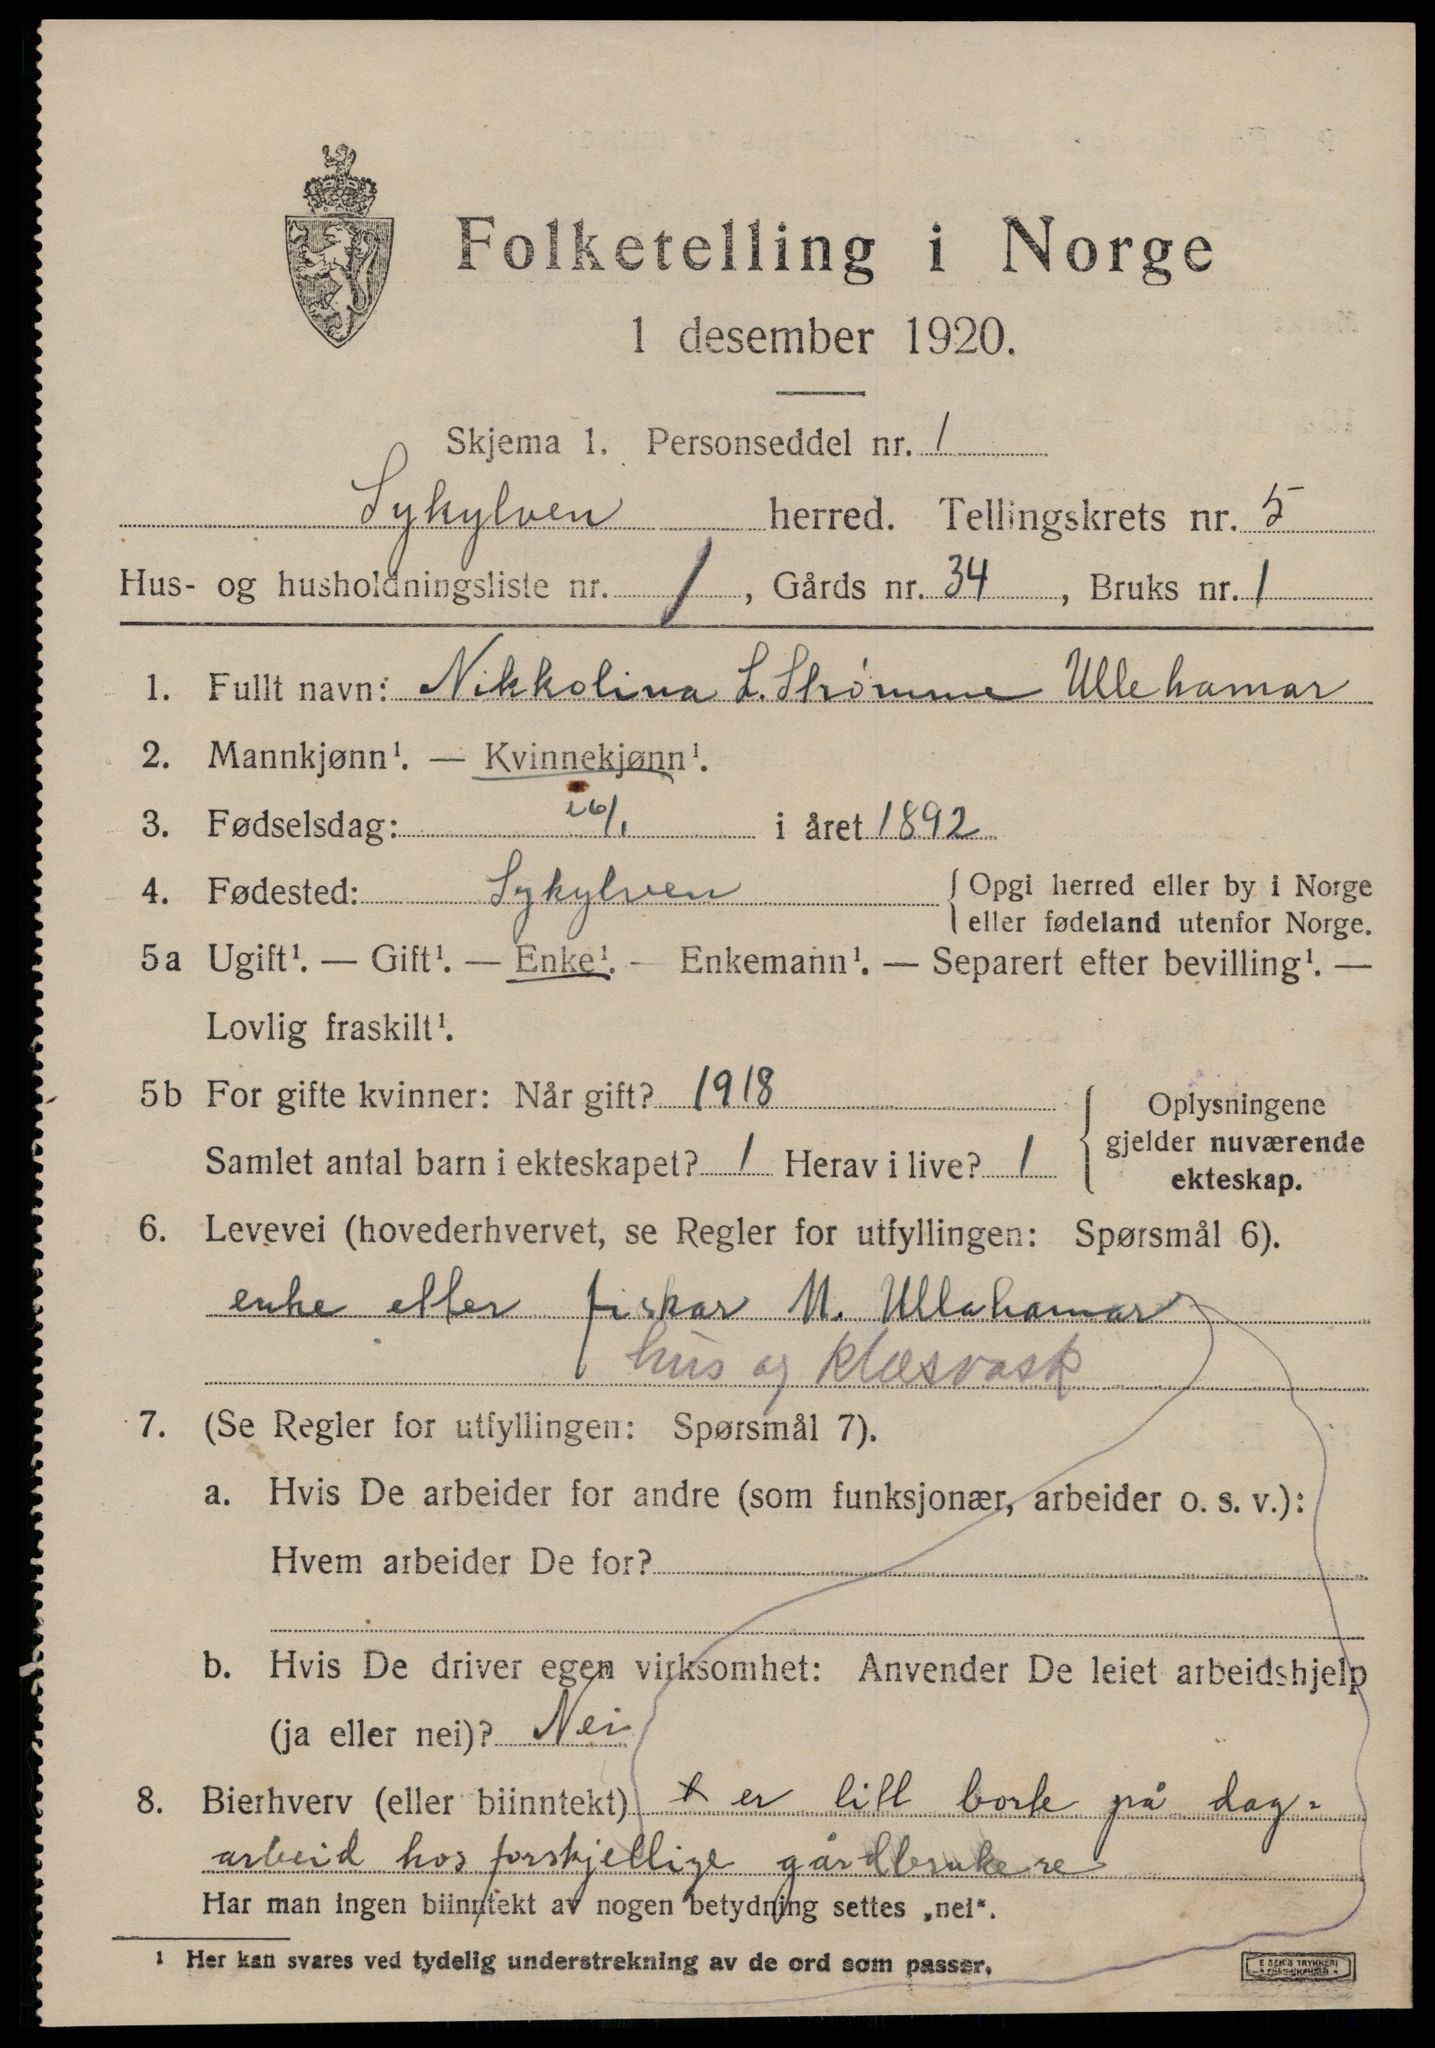 Folketelling i Norge
1 desember 1920.
Skjema 1. Personseddel nr. 1
Sykylven herred. Tellingskrets nr. 5
Hus- og husholdningsliste nr. 1, Gårds nr. 34, Bruks nr. 1
1. Fullt navn: Nikkolina L. Strømme Ullehamar
2. Mannkjønn¹. — Kvinnekjønn¹.
3. Fødselsdag: 26/1 i året 1892
4. Fødested: Sykylven { Opgi herred eller by i Norge
eller fødeland utenfor Norge.
5a Ugift¹. — Gift¹. — Enke¹. - Enkemann¹. — Separert efter bevilling¹. —
Lovlig fraskilt¹.
5b For gifte kvinner: Når gift? 1918
Samlet antal barn i ekteskapet? 1 Herav i live? 1
Oplysningene
gjelder nuværende
ekteskap.
6. Levevei (hovederhvervet, se Regler for utfyllingen: Spørsmål 6).
enke etter fiskar M. Ullahamar
hus og klæsvask
7. (Se Regler for utfyllingen: Spørsmål 7).
a. Hvis De arbeider for andre (som funksjonær, arbeider o. s. v.):
Hvem arbeider De for?
b. Hvis De driver egen virksomhet: Anvender De leiet arbeidshjelp
(ja eller nei)? Nei
8. Bierhverv (eller biinntekt) x er litt borte på dag-
arbeid hos forskjellige gårdbrukere
Har man ingen biinntekt av nogen betydning settes „nei“.
¹ Her kan svares ved tydelig understrekning av de ord som passer.